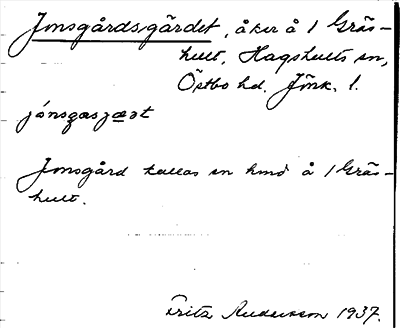 Jonsgårdsgärdet, åker å 1 Gräs-
hult, Hagshults sn,
Östbo hd, Jönk. l.
jónsgasjæt
Jonsgård kallas en hmd å 1 Gräs-
hult.
Fritz Andersson 1937.